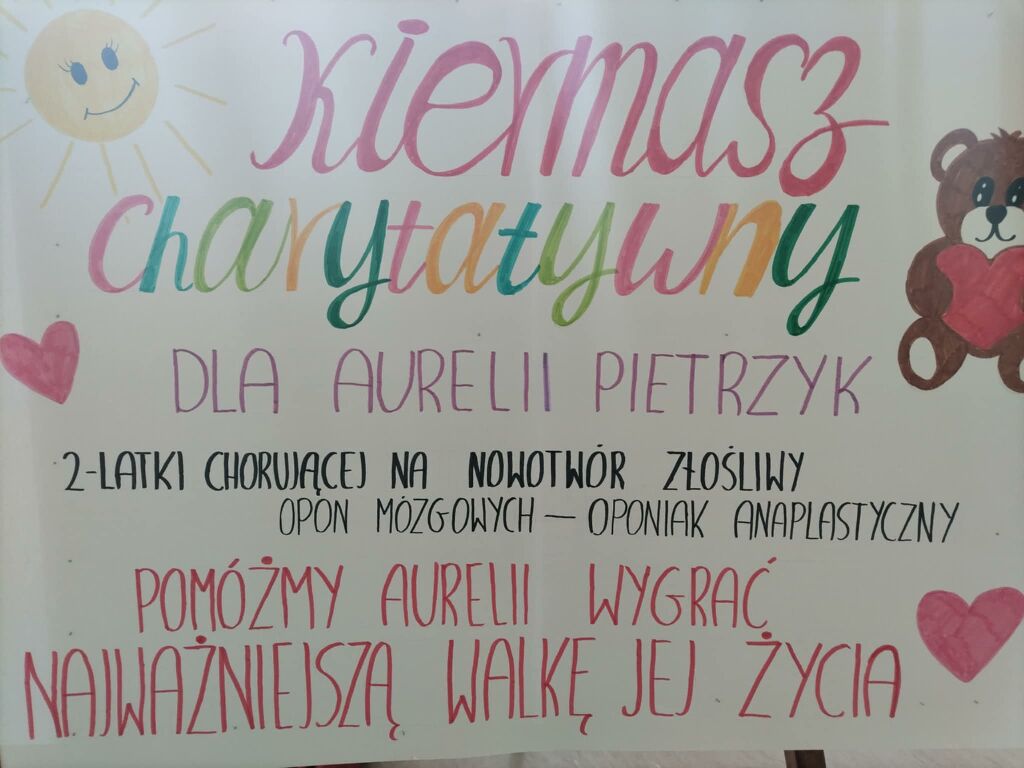 Kiermasz
charytatywny
DLA AURELII PIETRZYK
2-LATKI CHORUJĄCEJ NA NOWOTWÓR ZŁOŚLIWY
OPON MÓZGOWYCH — OPONIAK ANAPLASTYCZNY
POMÓŻMY AURELII WYGRAĆ
NAJWAŻNIEJSZĄ WALKĘ JEJ ŻYCIA